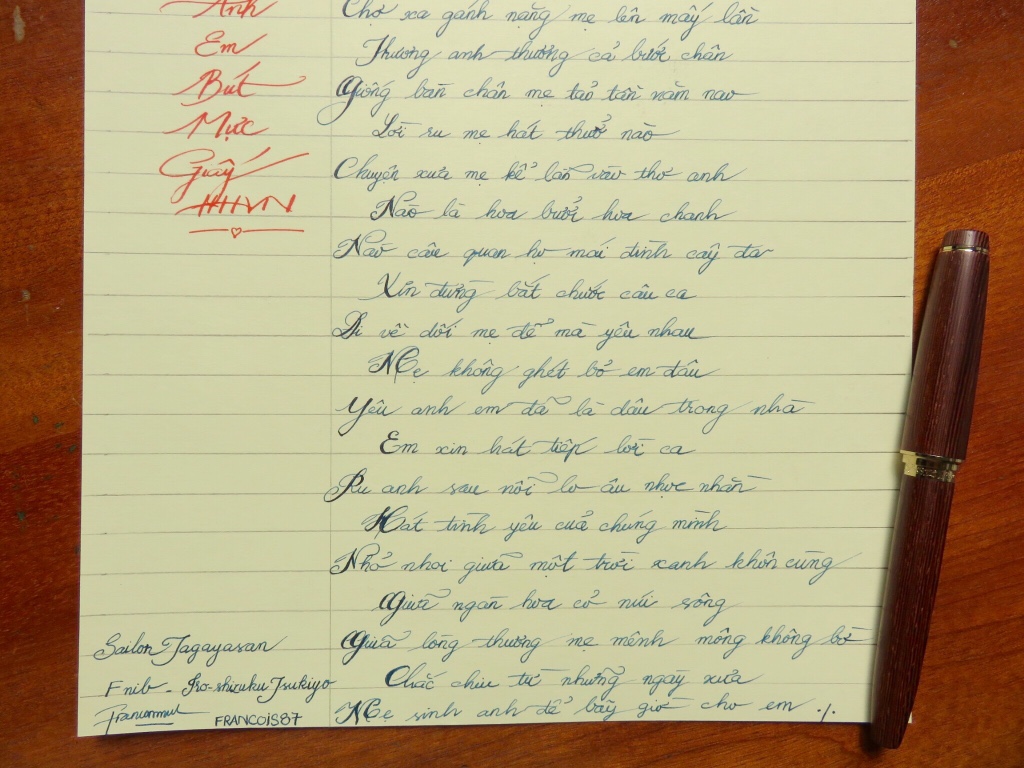 Anh
Em
Bút
Mực
Giấy
HHVN
Chợ xa gánh nặng mẹ lên mấy lần
Thương anh thương cả bước chân
Giống bàn chân mẹ tảo tần năm nao
Lời ru mẹ hát thuở nào
Chuyện xưa mẹ kể lẫn vào thơ anh
Nào là hoa bưởi hoa chanh
Nào câu quan họ mái đình cây đa
Xin đừng bắt chước câu ca
Đi về dối mẹ để mà yêu nhau
Mẹ không ghét bỏ em đâu
Yêu anh em đã là dâu trong nhà
Em xin hát tiếp lời ca
Ru anh sau nỗi lo âu nhọc nhằn
Hát tình yêu của chúng mình
Nhỏ nhoi giữa một trời xanh khôn cùng
Giữa ngàn hoa cỏ núi sông
Giữa lòng thương mẹ mênh mông không bờ
Chắc chiu từ những ngày xưa
Mẹ sinh anh để bây giờ cho em ./.
Sailor Tagayasan
F nib - Iro-shizuku Tsukiyo
FRANCOIS87